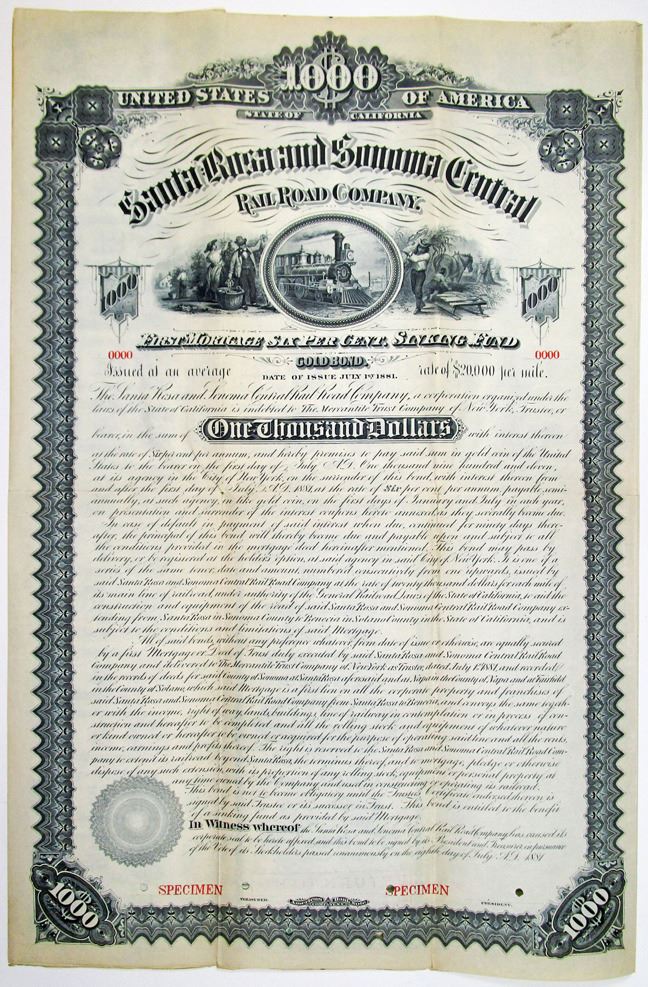 1000
UNITED STATES OF AMERICA
STATE OF CALIFORNIA
Santa Rosa and Sonoma Central
RAIL ROAD COMPANY.
1000 1000
FIRST MORTGAGE SIX PER CENT. SINKING FUND
0000 GOLD BOND, 0000
Issued at an average DATE OF ISSUE JULY 1ST 1881. rate of $20,000 per mile.
The Santa Rosa and Sonoma Central Rail Road Company, a corporation organized under the
laws of the State of California is indebted to The Mercantile Trust Company of New York, Trustee, or
bearer, in the sum of One Thousand Dollars with interest thereon
at the rate of Six per cent per annum, and hereby promises to pay said sum in gold coin of the United
States to the bearer on the first day of July A.D. One thousand nine hundred and eleven,
at its agency in the City of New York, on the surrender of this bond, with interest thereon from
and after the first day of July A.D. 1881, at the rate of Six per cent per annum, payable semi-
annually, at such agency, in like gold coin, on the first days of January and July in each year,
on presentation and surrender of the interest coupons hereto annexed, as they severally become due.
In case of default in payment of said interest when due, continued for ninety days there-
after, the principal of this bond will thereby become due and payable upon and subject to all
the conditions provided in the mortgage deed hereinafter mentioned. This bond may pass by
delivery, or be registered at the holders option, at said agency in said City of New York. It is one of a
series of the same tenor, date and amount, numbered consecutively from one upwards, issued by
said Santa Rosa and Sonoma Central Rail Road Company at the rate of twenty thousand dollars for each mile of
its main line of railroad, under authority of the General Railroad Laws of the State of California, to aid the
construction and equipment of the road of said Santa Rosa and Sonoma Central Rail Road Company ex-
tending from Santa Rosa in Sonoma County to Benecia in Solano County in the State of California, and is
subject to the conditions and limitations of said Mortgage.
All of said bonds, without any preference whatever from date of issue or otherwise, are equally secured
by a first Mortgage or Deed of Trust duly executed by said Santa Rosa and Sonoma Central Rail Road
Company and delivered to The Mercantile Trust Company of New York as Trustee, dated July 1st 1881, and recorded
in the records of deeds for said County of Sonoma at Santa Rosa aforesaid and in Napa in the County of Napa and at Fairfield
in the County of Solano, which said Mortgage is a first lien on all the corporate property and franchises of
said Santa Rosa and Sonoma Central Rail Road Company from Santa Rosa to Benecia, and conveys the same togeth-
er with the income, right of way, lands, buildings, line of railway in contemplation or in process of con-
struction and hereafter to be completed, and all the rolling stock and equipment of whatever nature
or kind owned or hereafter to be owned or acquired for the purpose of operating said line and all the rents,
income, earnings and profits thereof. The right is reserved to the Santa Rosa and Sonoma Central Rail Road Com-
pany to extend its railroad beyond Santa Rosa, the terminus thereof, and to mortgage, pledge or otherwise
dispose of any such extension, with its proportion of any rolling stock, equipment or personal property at
any time owned by the Company and used in constructing or operating its railroad.
This bond is not to become obligatory until the Trustee's Certificate endorsed thereon is
signed by said Trustee or its successor in Trust. This bond is entitled to the benefit
of a sinking fund as provided by said Mortgage.
In Witness whereof the Santa Rosa and Sonoma Central Rail Road Company has caused its
corporate seal to be hereto affixed, and this bond to be signed by its President and Treasurer, in pursuance
of the Vote of its Stockholders passed unanimously on the eighth day of July A.D. 1881
SPECIMEN SPECIMEN
TREASURER. PRESIDENT.
1000 1000